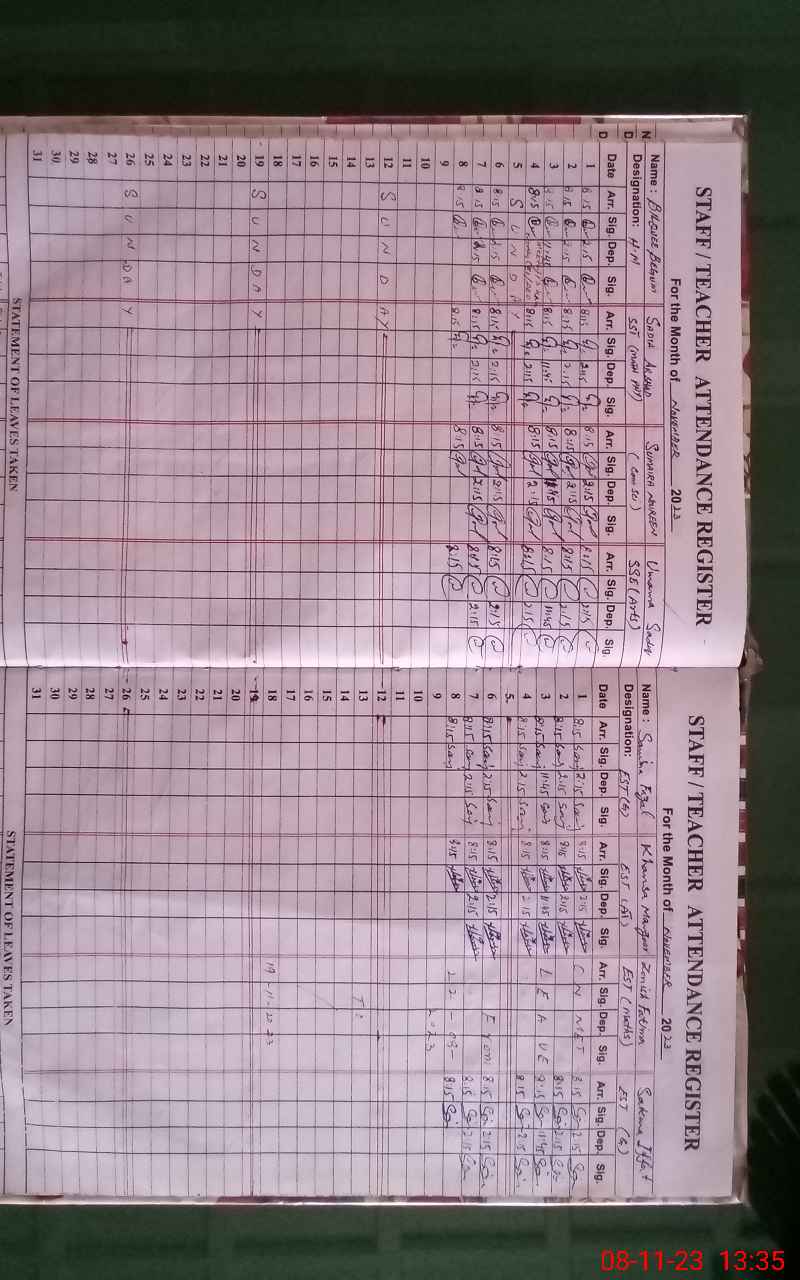 STAFF / TEACHER ATTENDANCE REGISTER
For the Month of November 2023
Name : BILQUEE BEGUM SADIA ARSHAD SUMAIRA NOUREEN Umama Sadiq
Designation: H.M SST (Math Phy) (Com sci) SSE (Arts)
Date Arr. Sig. Dep. Sig. Arr. Sig. Dep. Sig. Arr. Sig. Dep. Sig. Arr. Sig. Dep. Sig.
1 8:15 2:15 8:15 2:15 8:15 2:15 8:15 2:15
2 8:15 2:15 8:15 2:15 8:15 2:15 8:15 2:15
3 8:15 11:45 8:15 11:45 8:15 11:45 8:15 11:45
4 8:15 8:15 2:15 8:15 2:15 8:15 2:15
5 SUNDAY
6 8:15 2:15 8:15 2:15 8:15 2:15 8:15 2:15
7 8:15 2:15 8:15 2:15 8:15 2:15 8:15 2:15
8 8:15 8:15 8:15 8:15
9
10
11
12 SUNDAY
13
14
15
16
17
18
19 SUNDAY
20
21
22
23
24
25
26 SUNDAY
27
28
29
30
31
STATEMENT OF LEAVES TAKEN
STAFF / TEACHER ATTENDANCE REGISTER
For the Month of November 2023
Name : Samina Fazal Khansa Manzoor Zonish Fatima Sakina Iffat
Designation: EST (G) EST (AT) EST (Maths) EST (G)
Date Arr. Sig. Dep. Sig. Arr. Sig. Dep. Sig. Arr. Sig. Dep. Sig. Arr. Sig. Dep. Sig.
1 8:15 2:15 8:15 2:15 8:15 2:15
2 8:15 2:15 8:15 2:15 8:15 2:15
3 8:15 11:45 8:15 11:45 LEAVE 8:15 11:45
4 8:15 2:15 8:15 2:15 8:15 2:15
5
6 8:15 2:15 8:15 2:15 From 8:15 2:15
7 8:15 2:15 8:15 2:15 8:15 2:15
8 8:15 8:15 22-09- 8:15
9 2023
10
11
12
13 To
14
15
16
17
18 19-11-2023
19
20
21
22
23
24
25
26
27
28
29
30
31
STATEMENT OF LEAVES TAKEN
08-11-23 13:35